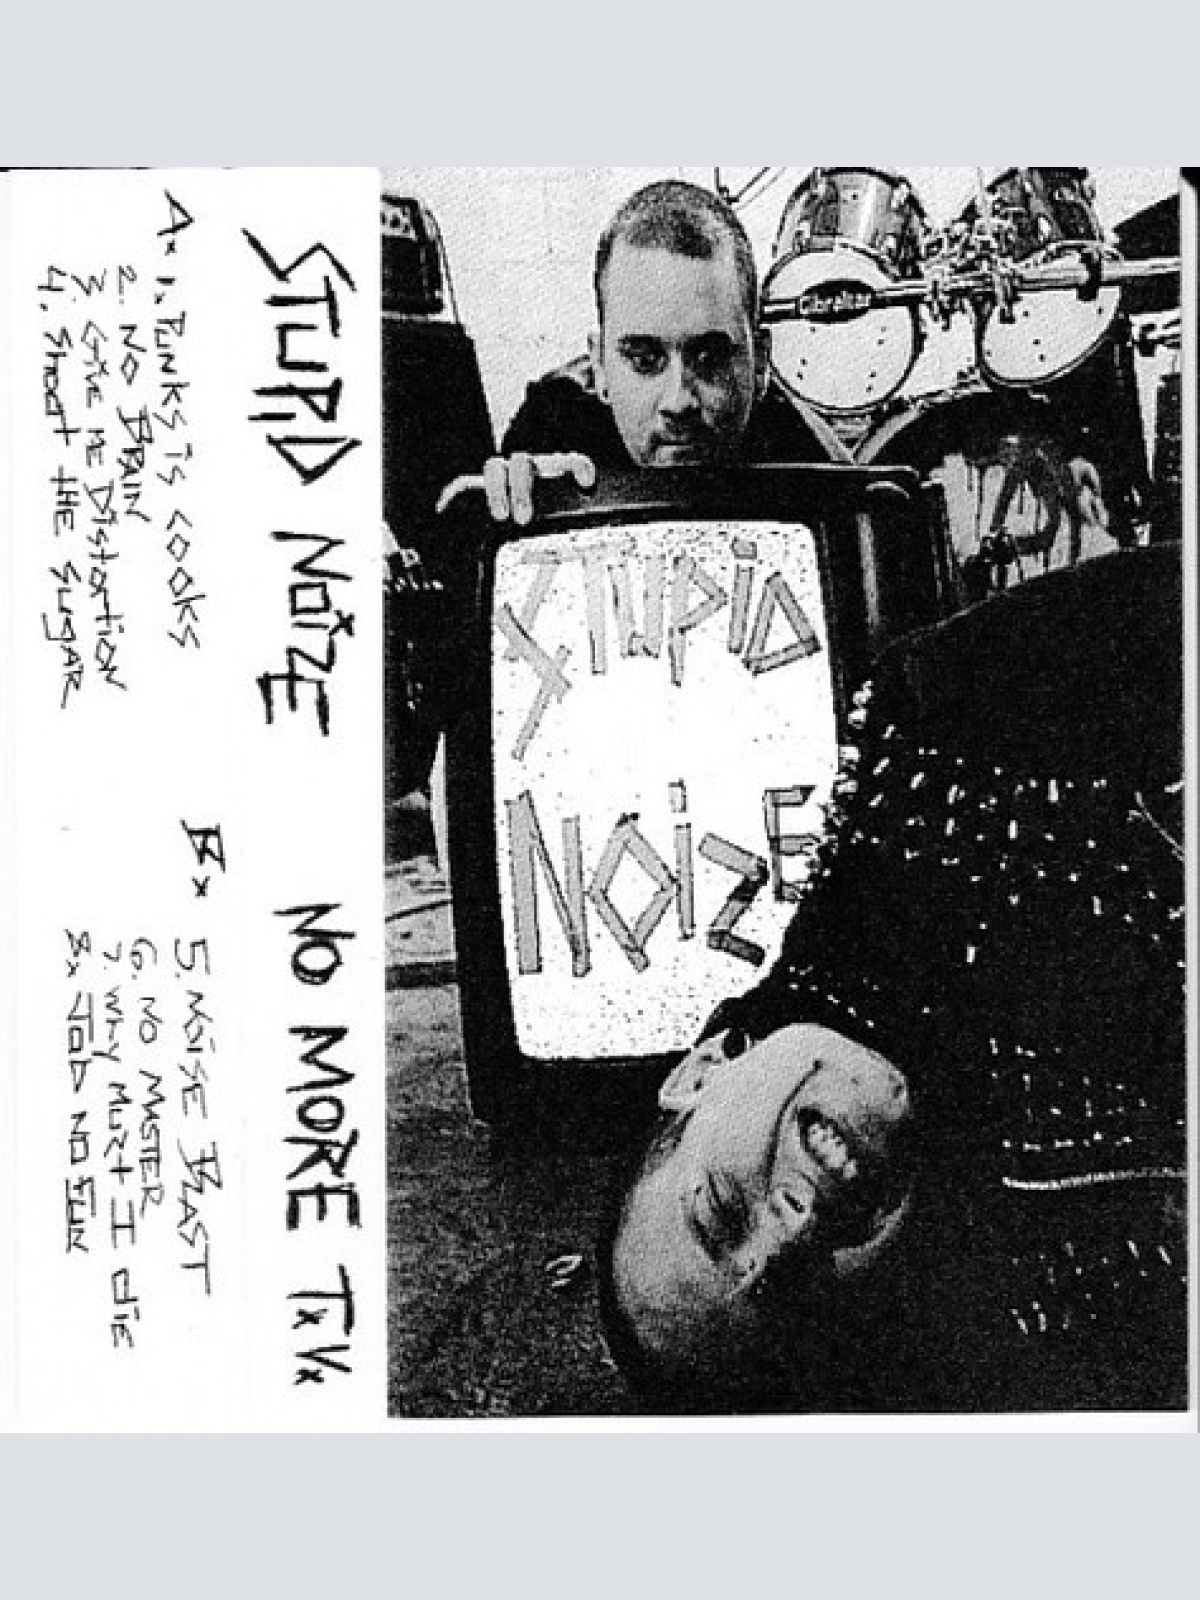 STUPID NOiZE NO MORE TxVx
Ax 1. PUNKS iS LOOKS
2. NO BRAIN
3. Give ME DiStortiON
4. Shoot tHE SUgAR
Bx 5. NOiSE BLAST
6. NO MASTER
7. WHY MUSt I diE
8x Job NO FUN
Gibraltar
STUPiD
NOiZE